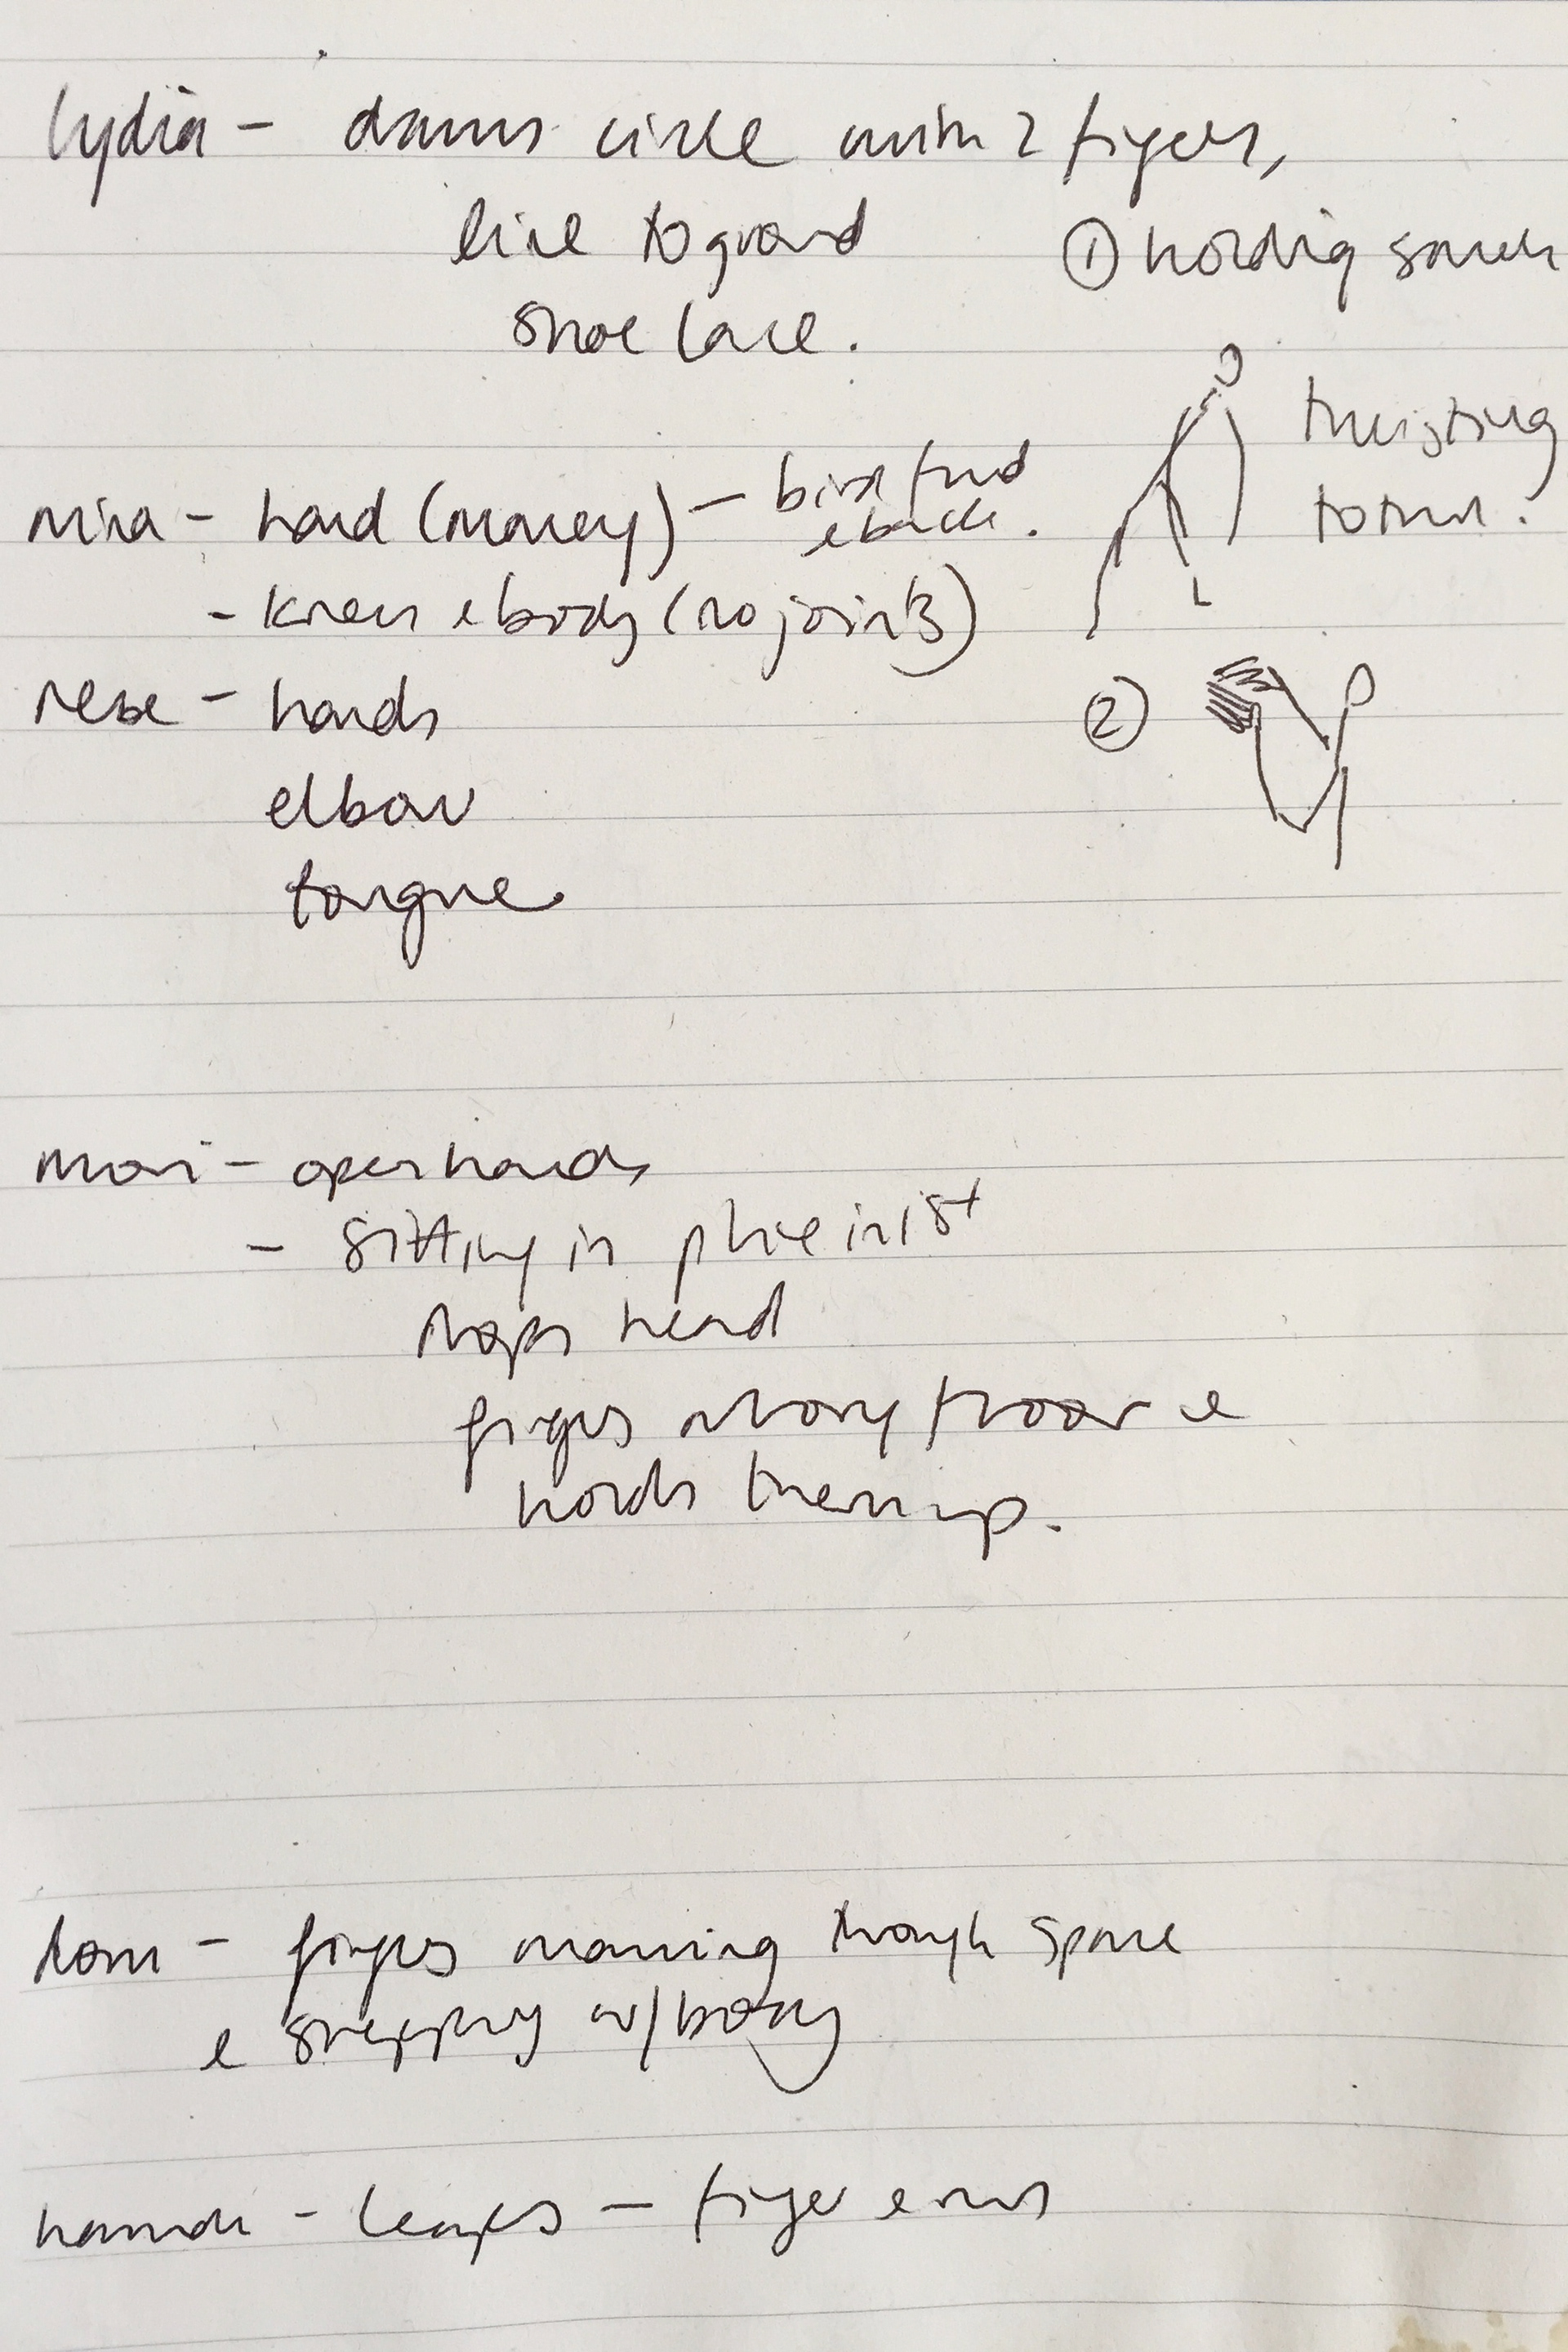 Lydia - draws circle with 2 fingers,
line to ground
shoe lace.
① holding
twisting
to turn.
mira - hand (money) - bird
e back.
- knees e body (no joints)
②
- hands
elbow
tongue
- open hands
- sitting in plie in 1st
drops head
fingers along floor e
holds them up.
tom - fingers moving through space
e stepping w/ body
- leaps - finger e